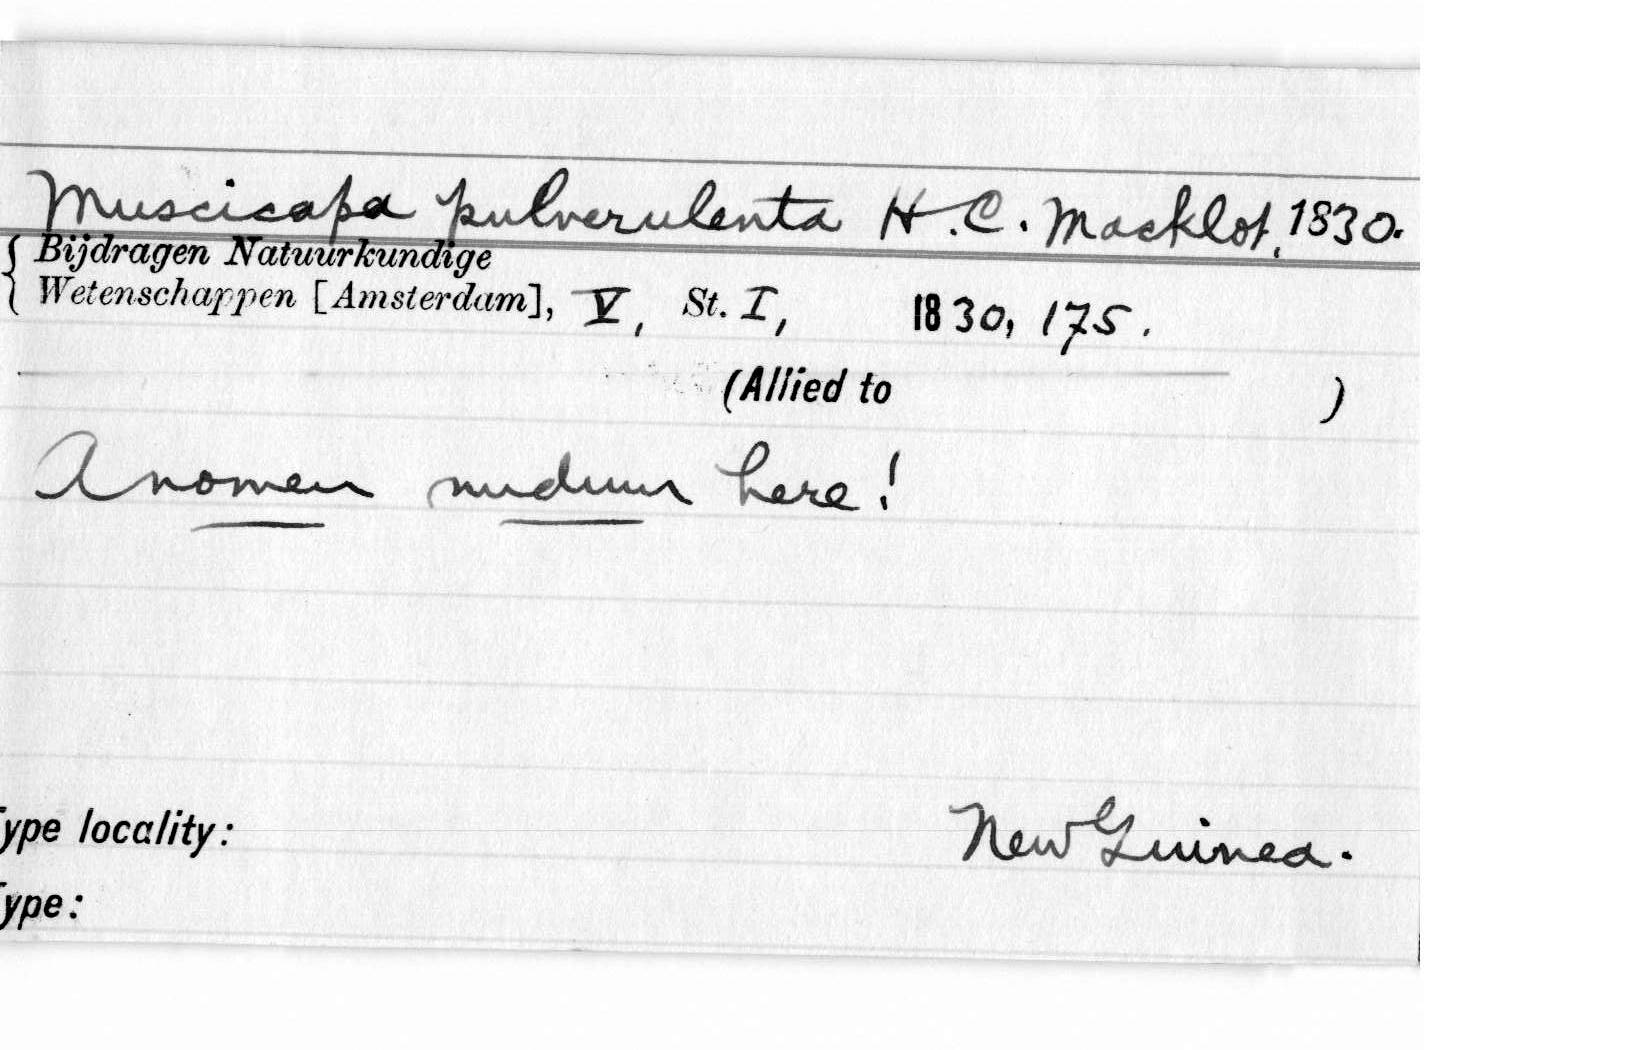 Muscicapa pulverulenta H.C. Macklot, 1830.
Bijdragen Natuurkundige
Wetenschappen [Amsterdam], V, St. I, 1830, 175.
(Allied to )
A nomen nudum here!
Type locality: New Guinea.
Type: